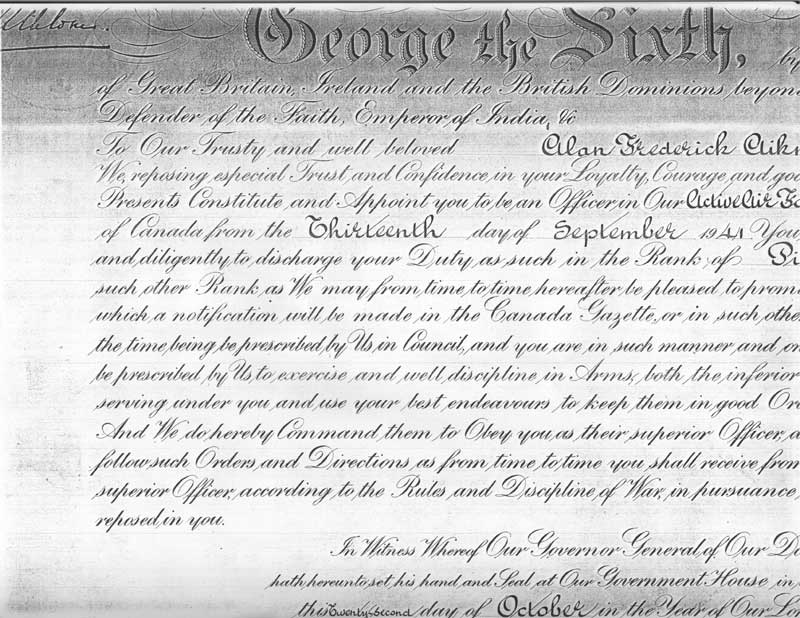 George the Sixth, by
of Great Britain, Ireland and the British Dominions beyond
Defender of the Faith, Emperor of India, &c
To Our Trusty and well beloved Alan Frederick
We, reposing especial Trust and Confidence in your Loyalty, Courage, and
Presents Constitute and Appoint you to be an Officer in Our Active Air
of Canada from the Thirteenth day of September 1941 You
and diligently to discharge your Duty as such in the Rank of
such other Rank as We may from time to time hereafter be pleased to
which a notification will be made in the Canada Gazette, or in such
the time being be prescribed by Us in Council, and you are in such manner and on
be prescribed by Us to exercise and well discipline in Arms, both the inferior
serving under you and use your best endeavours to keep them in good
And We do hereby Command them to Obey you as their superior Officer, a
follow such Orders and Directions as from time to time you shall receive from
superior Officer, according to the Rules and Discipline of War, in pursuance
reposed in you.
In Witness Whereof Our Governor General of Our
hath hereunto set his hand and Seal at Our Government House in
this Twenty-Second day of October in the Year of Our